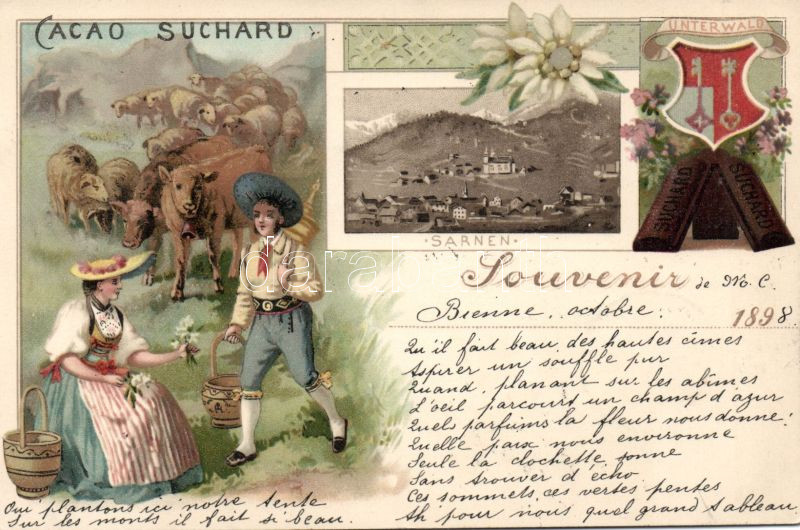 CACAO SUCHARD
UNTERWALD
SUCHARD
SUCHARD
SARNEN
Souvenir de M. C.
Bienne, octobre. 1898
Qu'il fait beau des hautes cîmes
Aspirer un souffle pur
Quand, planant sur les abîmes
L'oeil parcourt un champ d'azur
Quels parfums la fleur nous donne!
Quelle paix nous environne
Seule la clochette sonne
Sans trouver d'écho
Ces sommets, ces vertes pentes
Ah pour nous quel grand tableau.
Oui plantons ici notre tente
Sur les monts il fait si beau.
darabanth